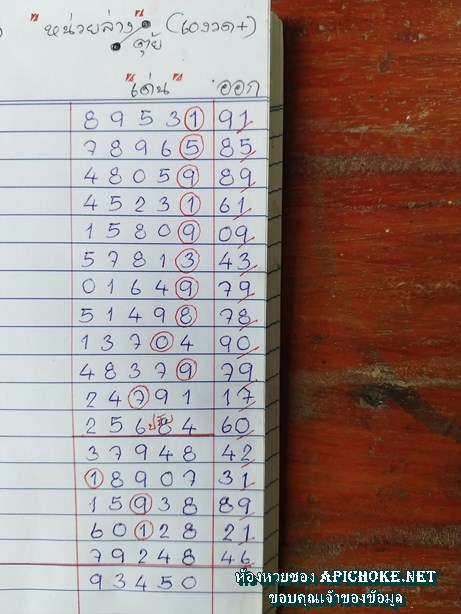 "หน่วยล่าง" (60งวด+)
ตุ้ย
"เด่น" ออก
8 9 5 3 1 91
7 8 9 6 5 85
4 8 0 5 9 89
4 5 2 3 1 61
1 5 8 0 9 09
5 7 8 1 3 43
0 1 6 4 9 79
5 1 4 9 8 78
1 3 7 0 4 90
4 8 3 7 9 79
2 4 7 9 1 17
2 5 6 8 4 60
3 7 9 4 8 42
1 8 9 0 7 31
1 5 9 3 8 89
6 0 1 2 8 21
7 9 2 4 8 46
9 3 4 5 0
ห้องหวยซอง APICHOKE.NET
ขอบคุณเจ้าของข้อมูล